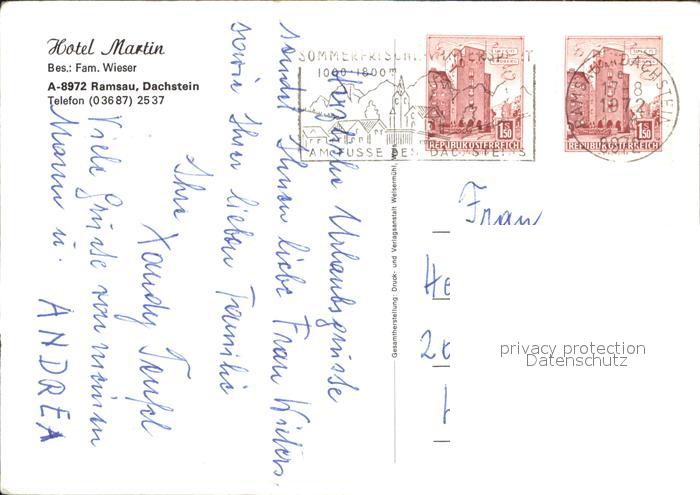 Hotel Martin
Bes.: Fam. Wieser
A-8972 Ramsau, Dachstein
Telefon (03687) 2537
Herzliche Urlaubsgrüsse
sendet Ihnen liebe Frau Winters,
sowie Ihrer lieben Familie
Ihre Xandy Teufel
Viele Grüsse von meinem
Mann u. ANDREA
Gesamtherstellung: Druck- und Verlagsanstalt Welsermühl, Wels
SOMMERFRISCHE WINTERSPORT
1000-1800m
AM FUSSE DES DACHSTEINS
1.50
REPUBLIK ÖSTERREICH
1.50
REPUBLIK ÖSTERREICH
RAMSAU AM DACHSTEIN
17 8
1972
Frau
He
20
privacy protection
Datenschutz